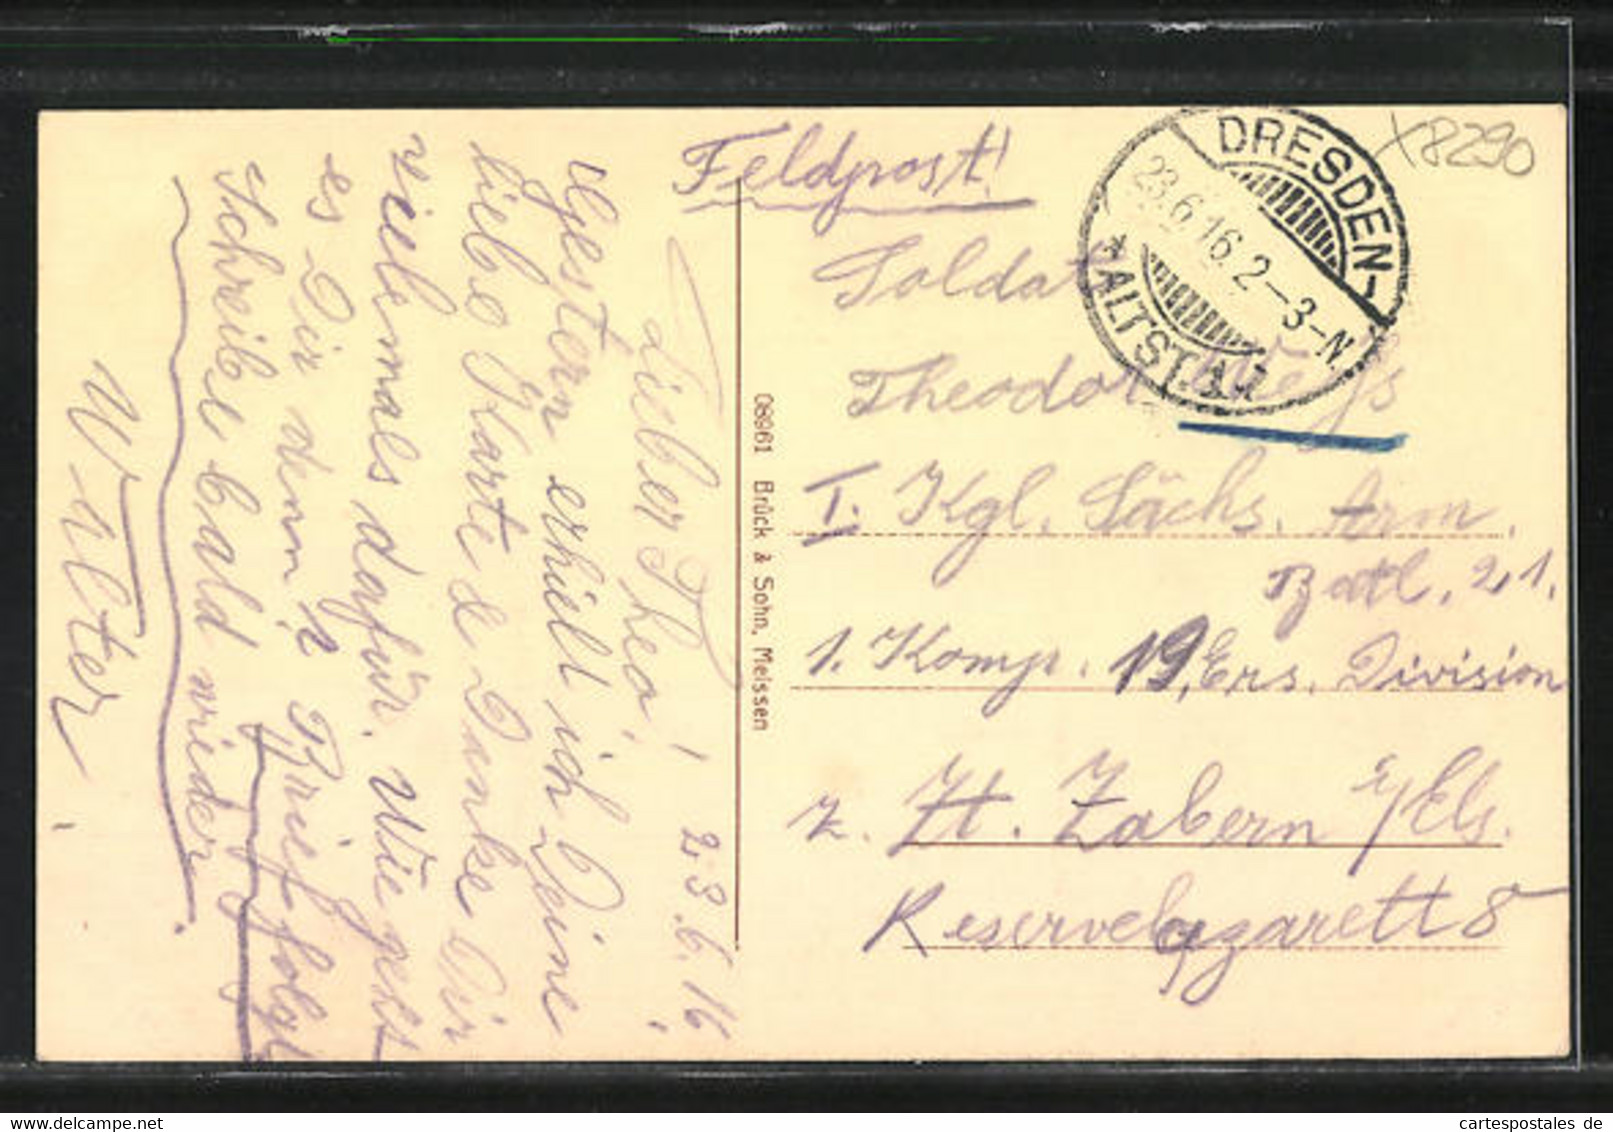 Feldpost!
Soldat
Theodor
I. Kgl. Sächs. Arm.
Batl. 21.
1. Komp. 19. Ers. Division
z. Zt. Zabern i/Els.
Reservelazarett
DRESDEN-
ALTST.
23.6.16. 2-3-N.
X8290
08961 Brück & Sohn, Meissen
23.6.16.
Lieber Theo!
Gestern erhielt ich Deine
liebe Karte & Danke Dir
vielemals dafür. Wie geht
es Dir denn? Brief folgt
Schreibe bald wieder.
Walter
cartespostales de